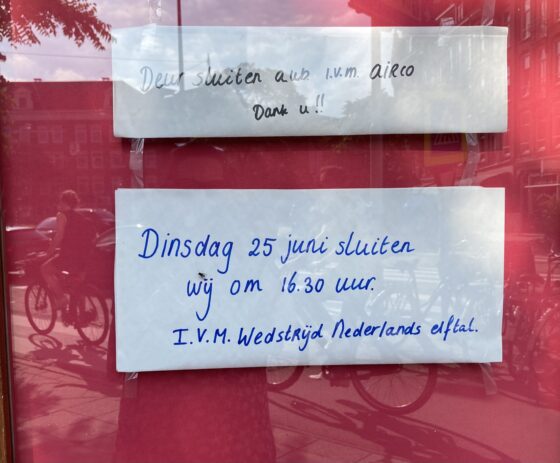 Deur sluiten aub i.v.m. airco
Dank u!!
Dinsdag 25 juni sluiten
wij om 16.30 uur.
I.V.M. Wedstrijd Nederlands elftal.